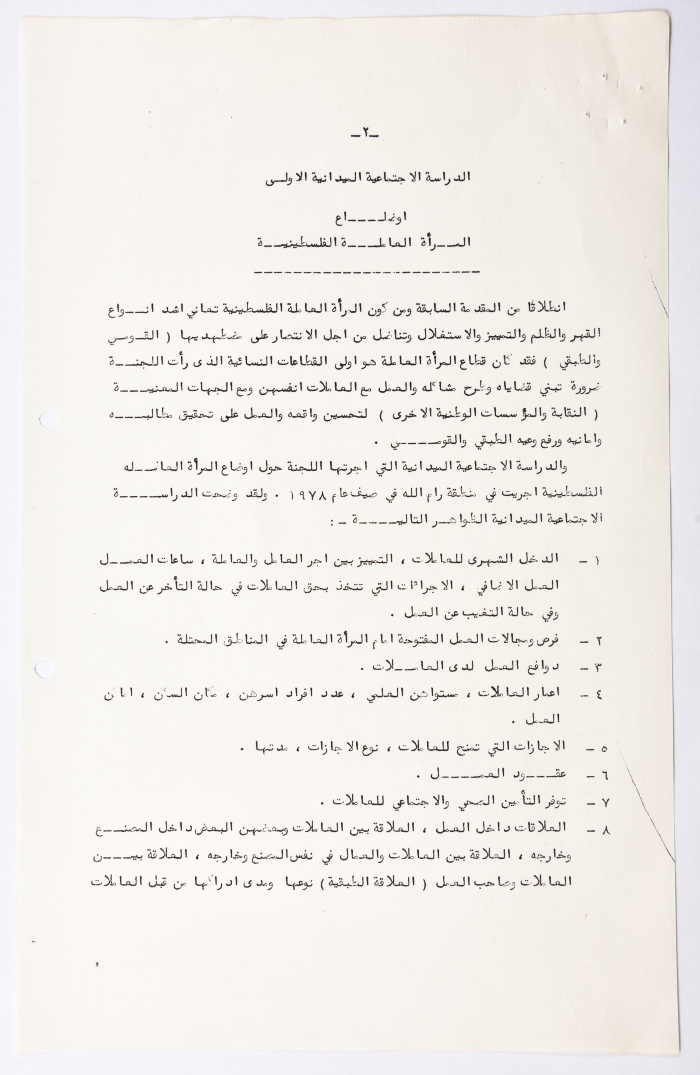 -٢-
الدراسة الاجتماعية الميدانية الاولى
اوضاع
المرأة العاملة الفلسطينية
انطلاقا من المقدمة السابقة ومن كون المرأة العاملة الفلسطينية تعاني اشد انواع
القهر والظلم والتمييز والاستغلال وتناضل من اجل الانتصار على مضطهديها ( القومي
والطبقي ) فقد كان قطاع المرأة العاملة هو اولى القطاعات النسائية الذى رأت اللجنة
ضرورة تبني قضاياه وطرح مشاكله والعمل مع العاملات انفسهن ومع الجهات المعنية
( النقابة والمؤسسات الوطنية الاخرى ) لتحسين واقعه والعمل على تحقيق مطالبه
وامانيه ورفع وعيه الطبقي والقومي .
والدراسة الاجتماعية الميدانية التي اجرتها اللجنة حول اوضاع المرأة العامله
الفلسطينية اجريت في منطقة رام الله في صيف عام ١٩٧٨ . ولقد وضحت الدراسة
الاجتماعية الميدانية الظواهر التالية - :
١ - الدخل الشهرى للعاملات ، التمييز بين اجر العامل والعاملة ، ساعات العمل
العمل الاضافي ، الاجراءات التي تتخذ بحق العاملات في حالة التأخر عن العمل
وفي حالة التغيب عن العمل .
٢ - فرص ومجالات العمل المفتوحة امام المرأة العاملة في المناطق المحتلة .
٣ - دوافع العمل لدى العاملات .
٤ - اعمار العاملات ، مستواهن العلمي ، عدد افراد اسرهن ، مكان السكن ، اماكن
العمل .
٥ - الاجازات التي تمنح للعاملات ، نوع الاجازات ، مدتها .
٦ - عقود العمل .
٧ - توفر التأمين الصحي والاجتماعي للعاملات .
٨ - العلاقات داخل العمل ، العلاقة بين العاملات وبعضهن البعض داخل المصنع
وخارجه ، العلاقة بين العاملات والعمال في نفس المصنع وخارجه ، العلاقة بين
العاملات وصاحب العمل ( العلاقة الطبقية ) نوعها ومدى ادراكها من قبل العاملات